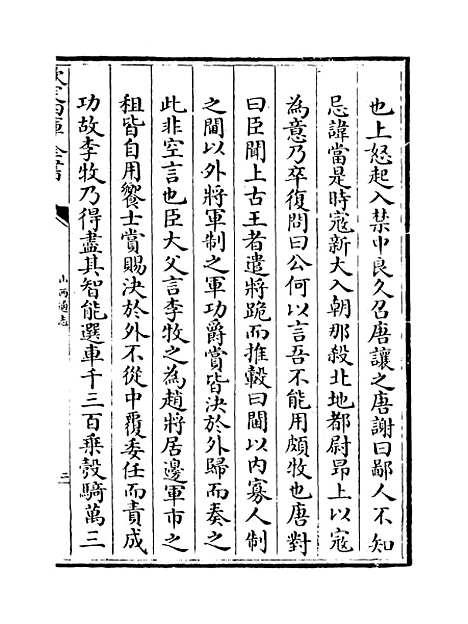 也上怒起入禁中良久召唐讓之唐謝曰鄙人不知
忌諱當是時寇新大入朝那殺北地都尉昂上以寇
為意乃卒復問曰公何以言吾不能用頗牧也唐對
曰臣聞上古王者遣將跪而推轂曰閫以內寡人制
之閫以外將軍制之軍功爵賞皆決於外歸而奏之
此非空言也臣大父言李牧之為趙將居邊軍市之
租皆自用饗士賞賜決於外不從中覆委任而責成
功故李牧乃得盡其智能選車千三百乗彀騎萬三
欽定四庫全書
山西通志
三